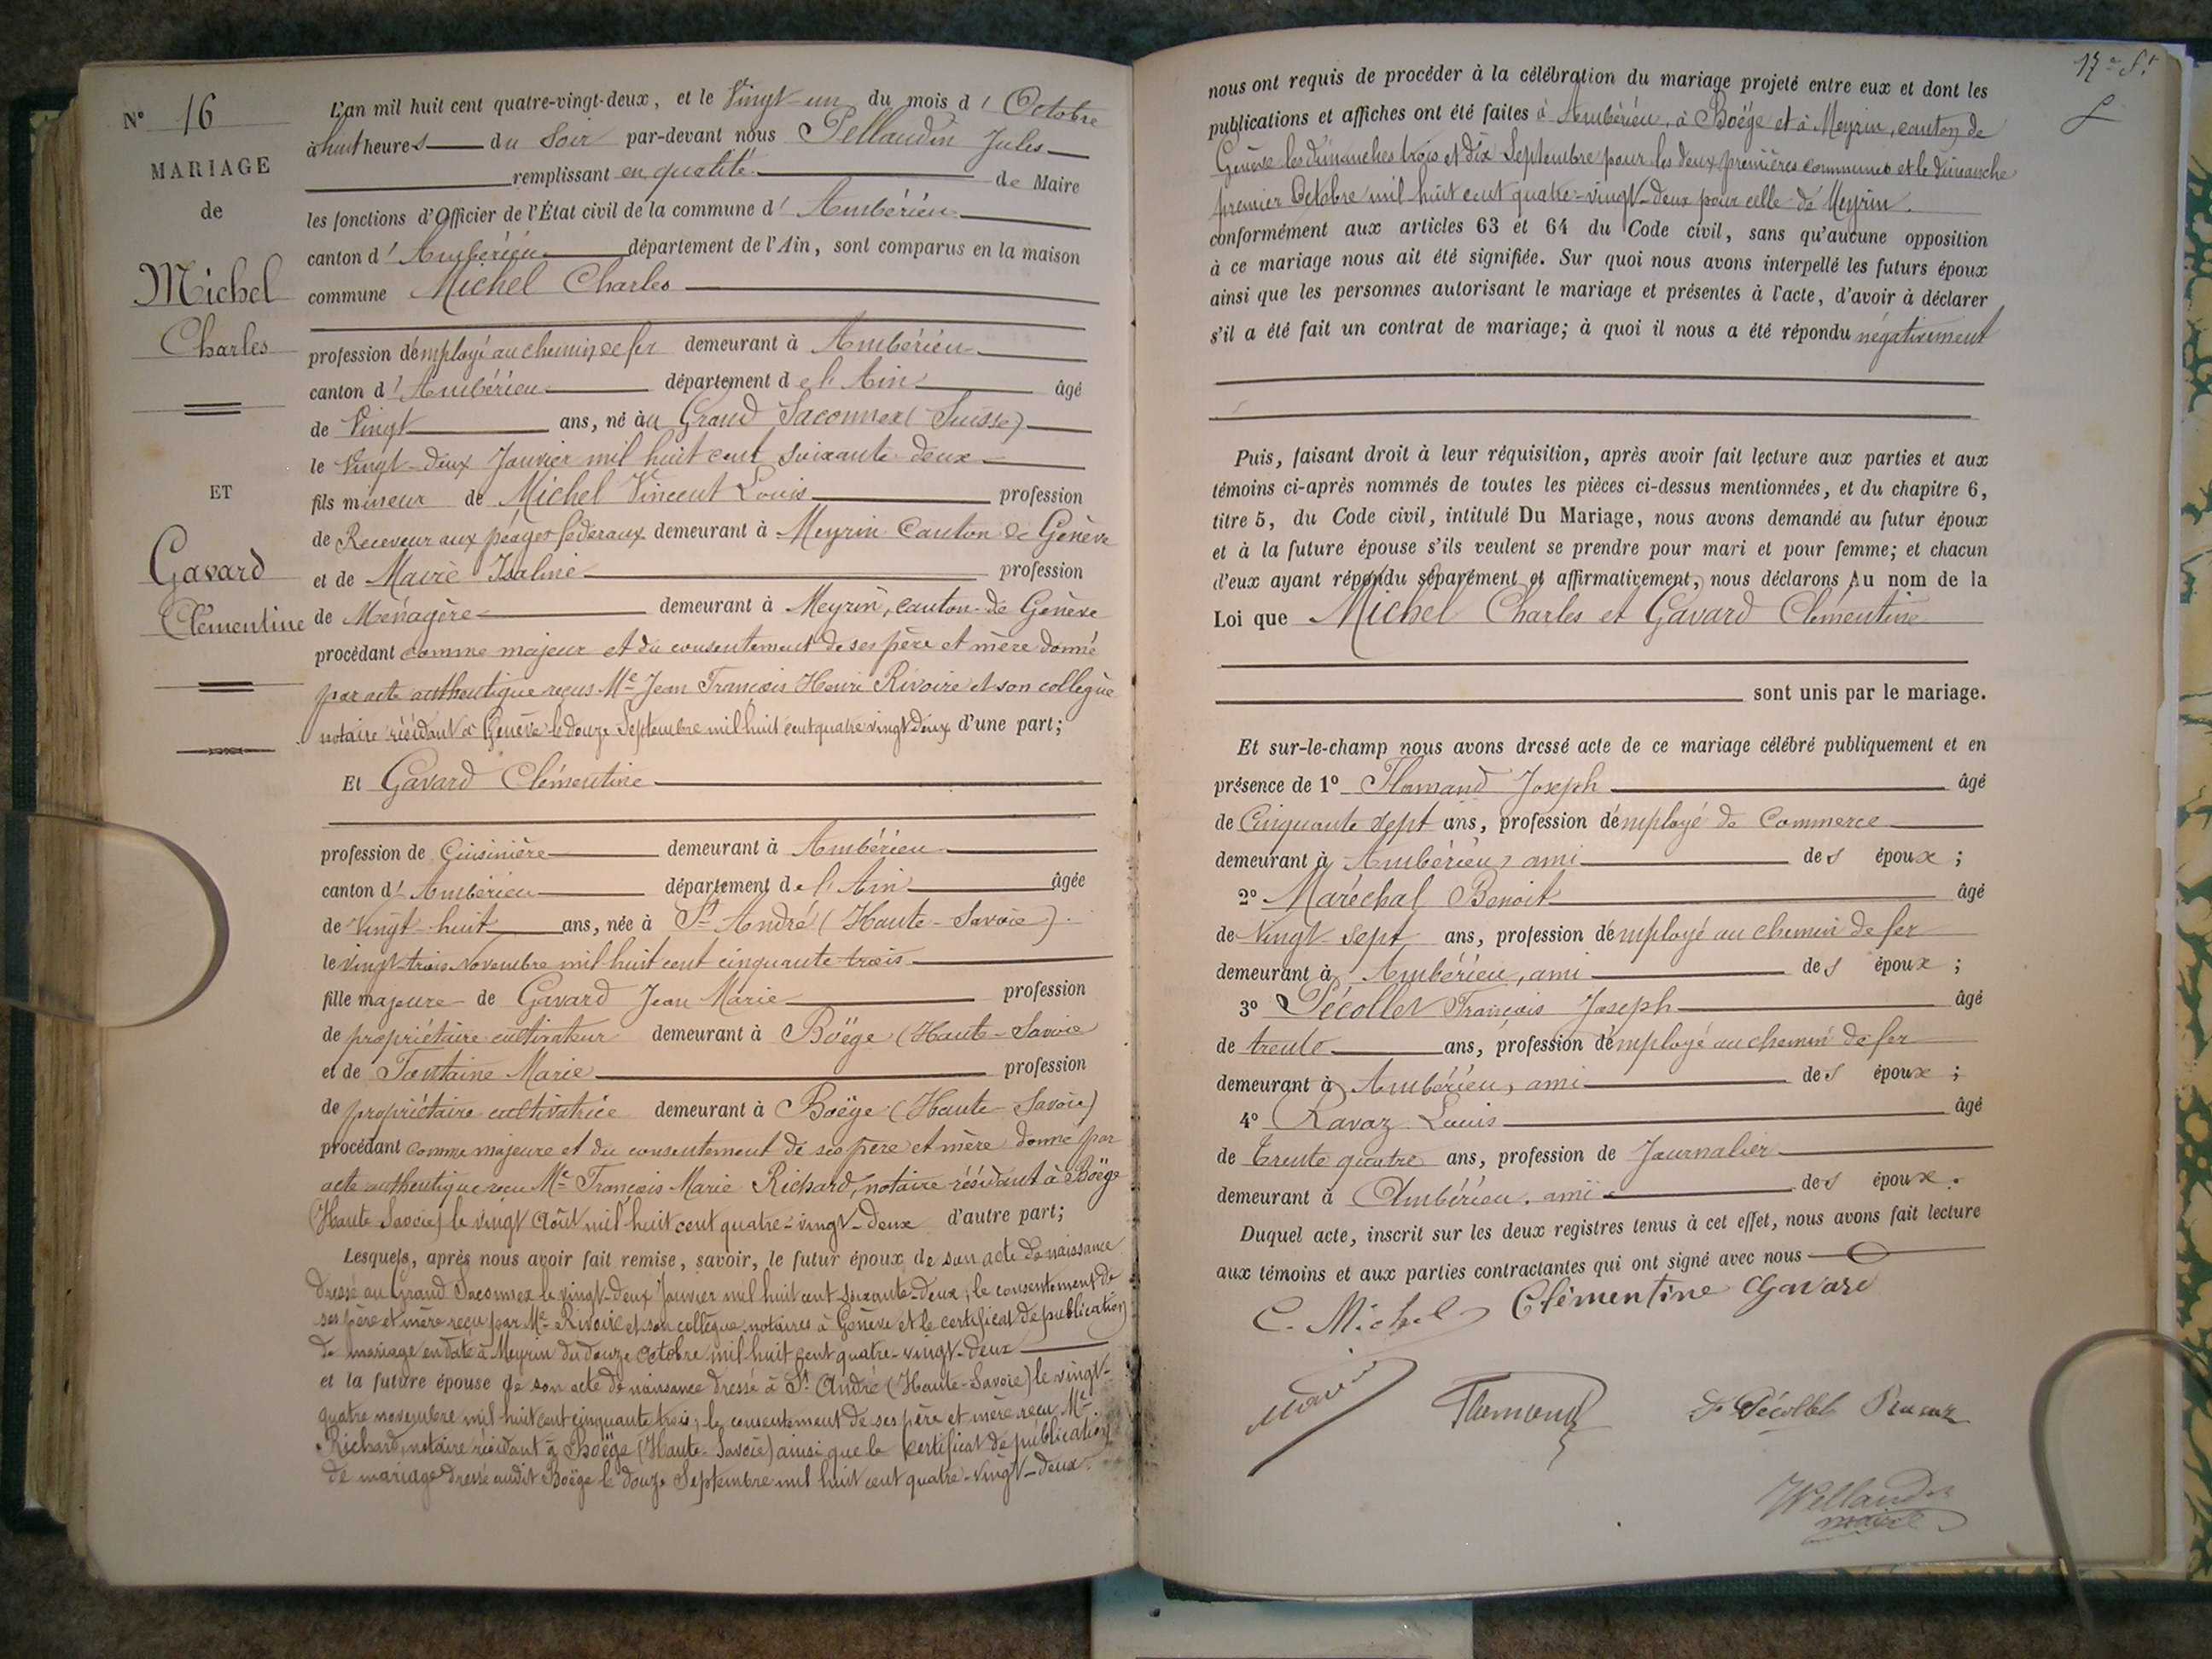 N° 16
MARIAGE
de
Michel
Charles
ET
Gavard
Clémentine
L'an mil huit cent quatre-vingt-deux, et le Vingt-un du mois d'Octobre
à huit heures du Soir par-devant nous Pellaudin Jules
remplissant en qualité de Maire
les fonctions d'Officier de l'État civil de la commune d'Ambérieu
canton d'Ambérieu département de l'Ain, sont comparus en la maison
commune Michel Charles
profession d'employé au chemin de fer demeurant à Ambérieu
canton d'Ambérieu département de l'Ain âgé
de Vingt ans, né au Grand Saconnex (Suisse)
le Vingt-deux Janvier mil huit cent soixante deux
fils mineur de Michel Vincent Louis profession
de Receveur aux péages fédéraux demeurant à Meyrin Canton de Genève
et de Isaline profession
de Ménagère demeurant à Meyrin, canton de Genève
procédant comme majeur et du consentement de ses père et mère donné
par acte authentique reçus Me Jean François Henri Rivoire et son collegue
notaire résidant à Genève le douze Septembre mil huit cent quatre vingt deux d'une part;
Et Gavard Clémentine
profession de Cuisinière demeurant à Ambérieu
canton d'Ambérieu département de l'Ain âgée
de vingt-huit ans, née à St André (Haute-Savoie).
le vingt-trois Novembre mil huit cent cinquante-trois
fille majeure de Gavard Jean Marie profession
de propriétaire cultivateur demeurant à Boëge (Haute-Savoie
et de Fontaine Marie profession
de propriétaire cultivatrice demeurant à Boëge (Haute-Savoie)
procédant comme majeure et du consentement de ses père et mère donné par
acte authentique reçu Me François Marie Richard, notaire résidant à Boëge
(Haute Savoie) le vingt Août mil huit cent quatre-vingt-deux d'autre part;
Lesquels, après nous avoir fait remise, savoir, le futur époux de son acte de naissance
dressé au Grand Saconnex le vingt-deux Janvier mil huit cent soixante-deux, le consentement de
ses père et mère reçu par Me Rivoire et son collègue notaires à Genève et le certificat de publication
de mariage en date à Meyrin du douze octobre mil huit cent quatre-vingt-deux
et la future épouse de son acte de naissance dressé à St André (Haute-Savoie) le vingt-
quatre novembre mil huit cent cinquante trois, le consentement de ses père et mère reçu Me
Richard, notaire résidant à Boëge (Haute-Savoie) ainsi que le certificat de publication
de mariage dressé audit Boëge le douze Septembre mil huit cent quatre-vingt-deux.
nous ont requis de procéder à la célébration du mariage projeté entre eux et dont les
publications et affiches ont été faites à Ambérieu, à Boëge et à Meyrin, canton de
Genève les dimanches trois et dix Septembre pour les deux premières communes et le dimanche
premier Octobre mil huit cent quatre-vingt-deux pour celle de Meyrin.
conformément aux articles 63 et 64 du Code civil, sans qu'aucune opposition
à ce mariage nous ait été signifiée. Sur quoi nous avons interpellé les futurs époux
ainsi que les personnes autorisant le mariage et présentes à l'acte, d'avoir à déclarer
s'il a été fait un contrat de mariage; à quoi il nous a été répondu négativement
Puis, faisant droit à leur réquisition, après avoir fait lecture aux parties et aux
témoins ci-après nommés de toutes les pièces ci-dessus mentionnées, et du chapitre 6,
titre 5, du Code civil, intitulé Du Mariage, nous avons demandé au futur époux
et à la future épouse s'ils veulent se prendre pour mari et pour femme; et chacun
d'eux ayant répondu séparément et affirmativement, nous déclarons Au nom de la
Loi que Michel Charles et Gavard Clémentine
sont unis par le mariage.
Et sur-le-champ nous avons dressé acte de ce mariage célébré publiquement et en
présence de 1° Flamand Joseph âgé
de Cinquante sept ans, profession d'employé de Commerce
demeurant à Ambérieu, ami des époux;
2° Maréchal Benoit âgé
de Vingt sept ans, profession d'employé au chemin de fer
demeurant à Ambérieu, ami des époux;
3° Pécollet François Joseph âgé
de trente ans, profession d'employé au chemin de fer
demeurant à Ambérieu, ami des époux;
4° Ravaz Louis âgé
de Trente quatre ans, profession de Journalier
demeurant à Ambérieu. ami des époux.
Duquel acte, inscrit sur les deux registres tenus à cet effet, nous avons fait lecture
aux témoins et aux parties contractantes qui ont signé avec nous
C. Michel Clémentine Gavard
Flamand F. Pécollet Ravaz
maire